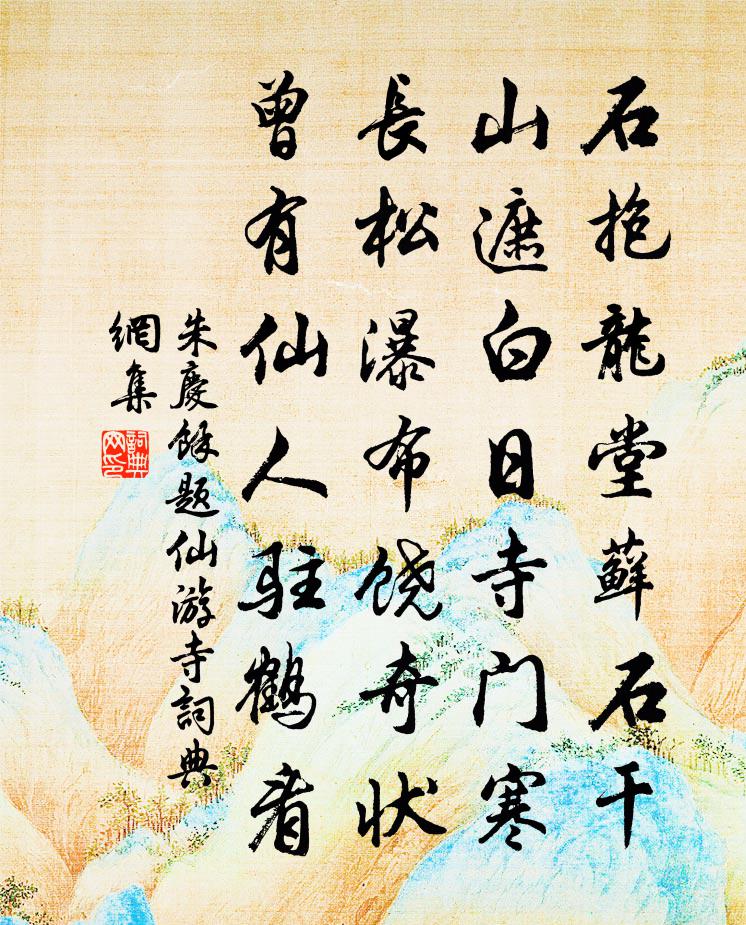 石抱龍堂蘚石干
山遮白日寺门寒
長松瀑布饶奇状
曾有仙人驻鶴看
朱慶餘题仙游寺詞典
網集
詞典
网印